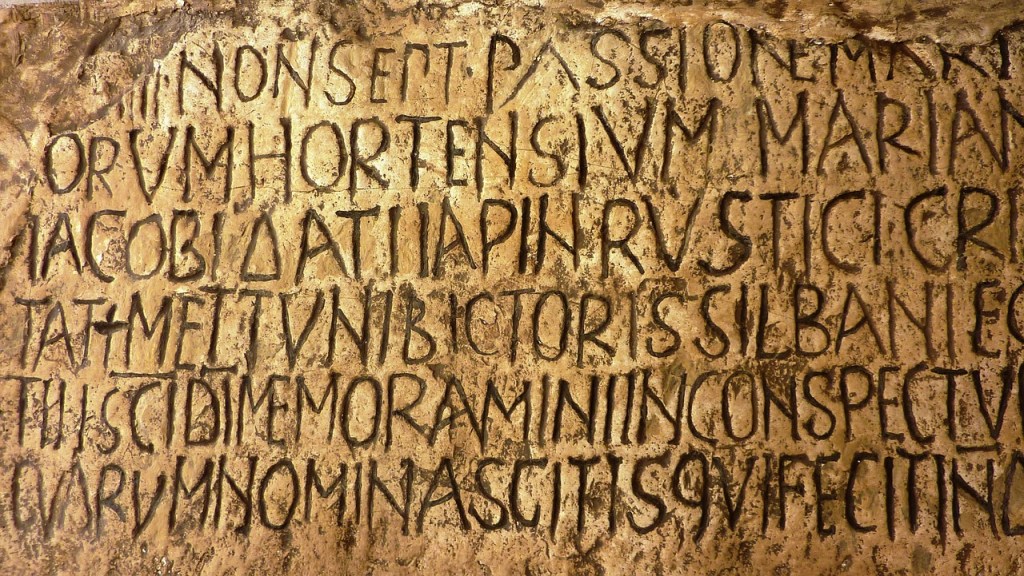 IIII NON SEPT · PASSIONE MART
ORVM HORTENSIVM MARIAN
IACOBI ΔATI IAPIN RVSTICI CRI
TAT + METTVNI BICTORIS SILBANI EG
TII SCI DI MEMORAMINI IN CONSPECTV
QVARVM NOMINA SCITIS QVI FECIT IND